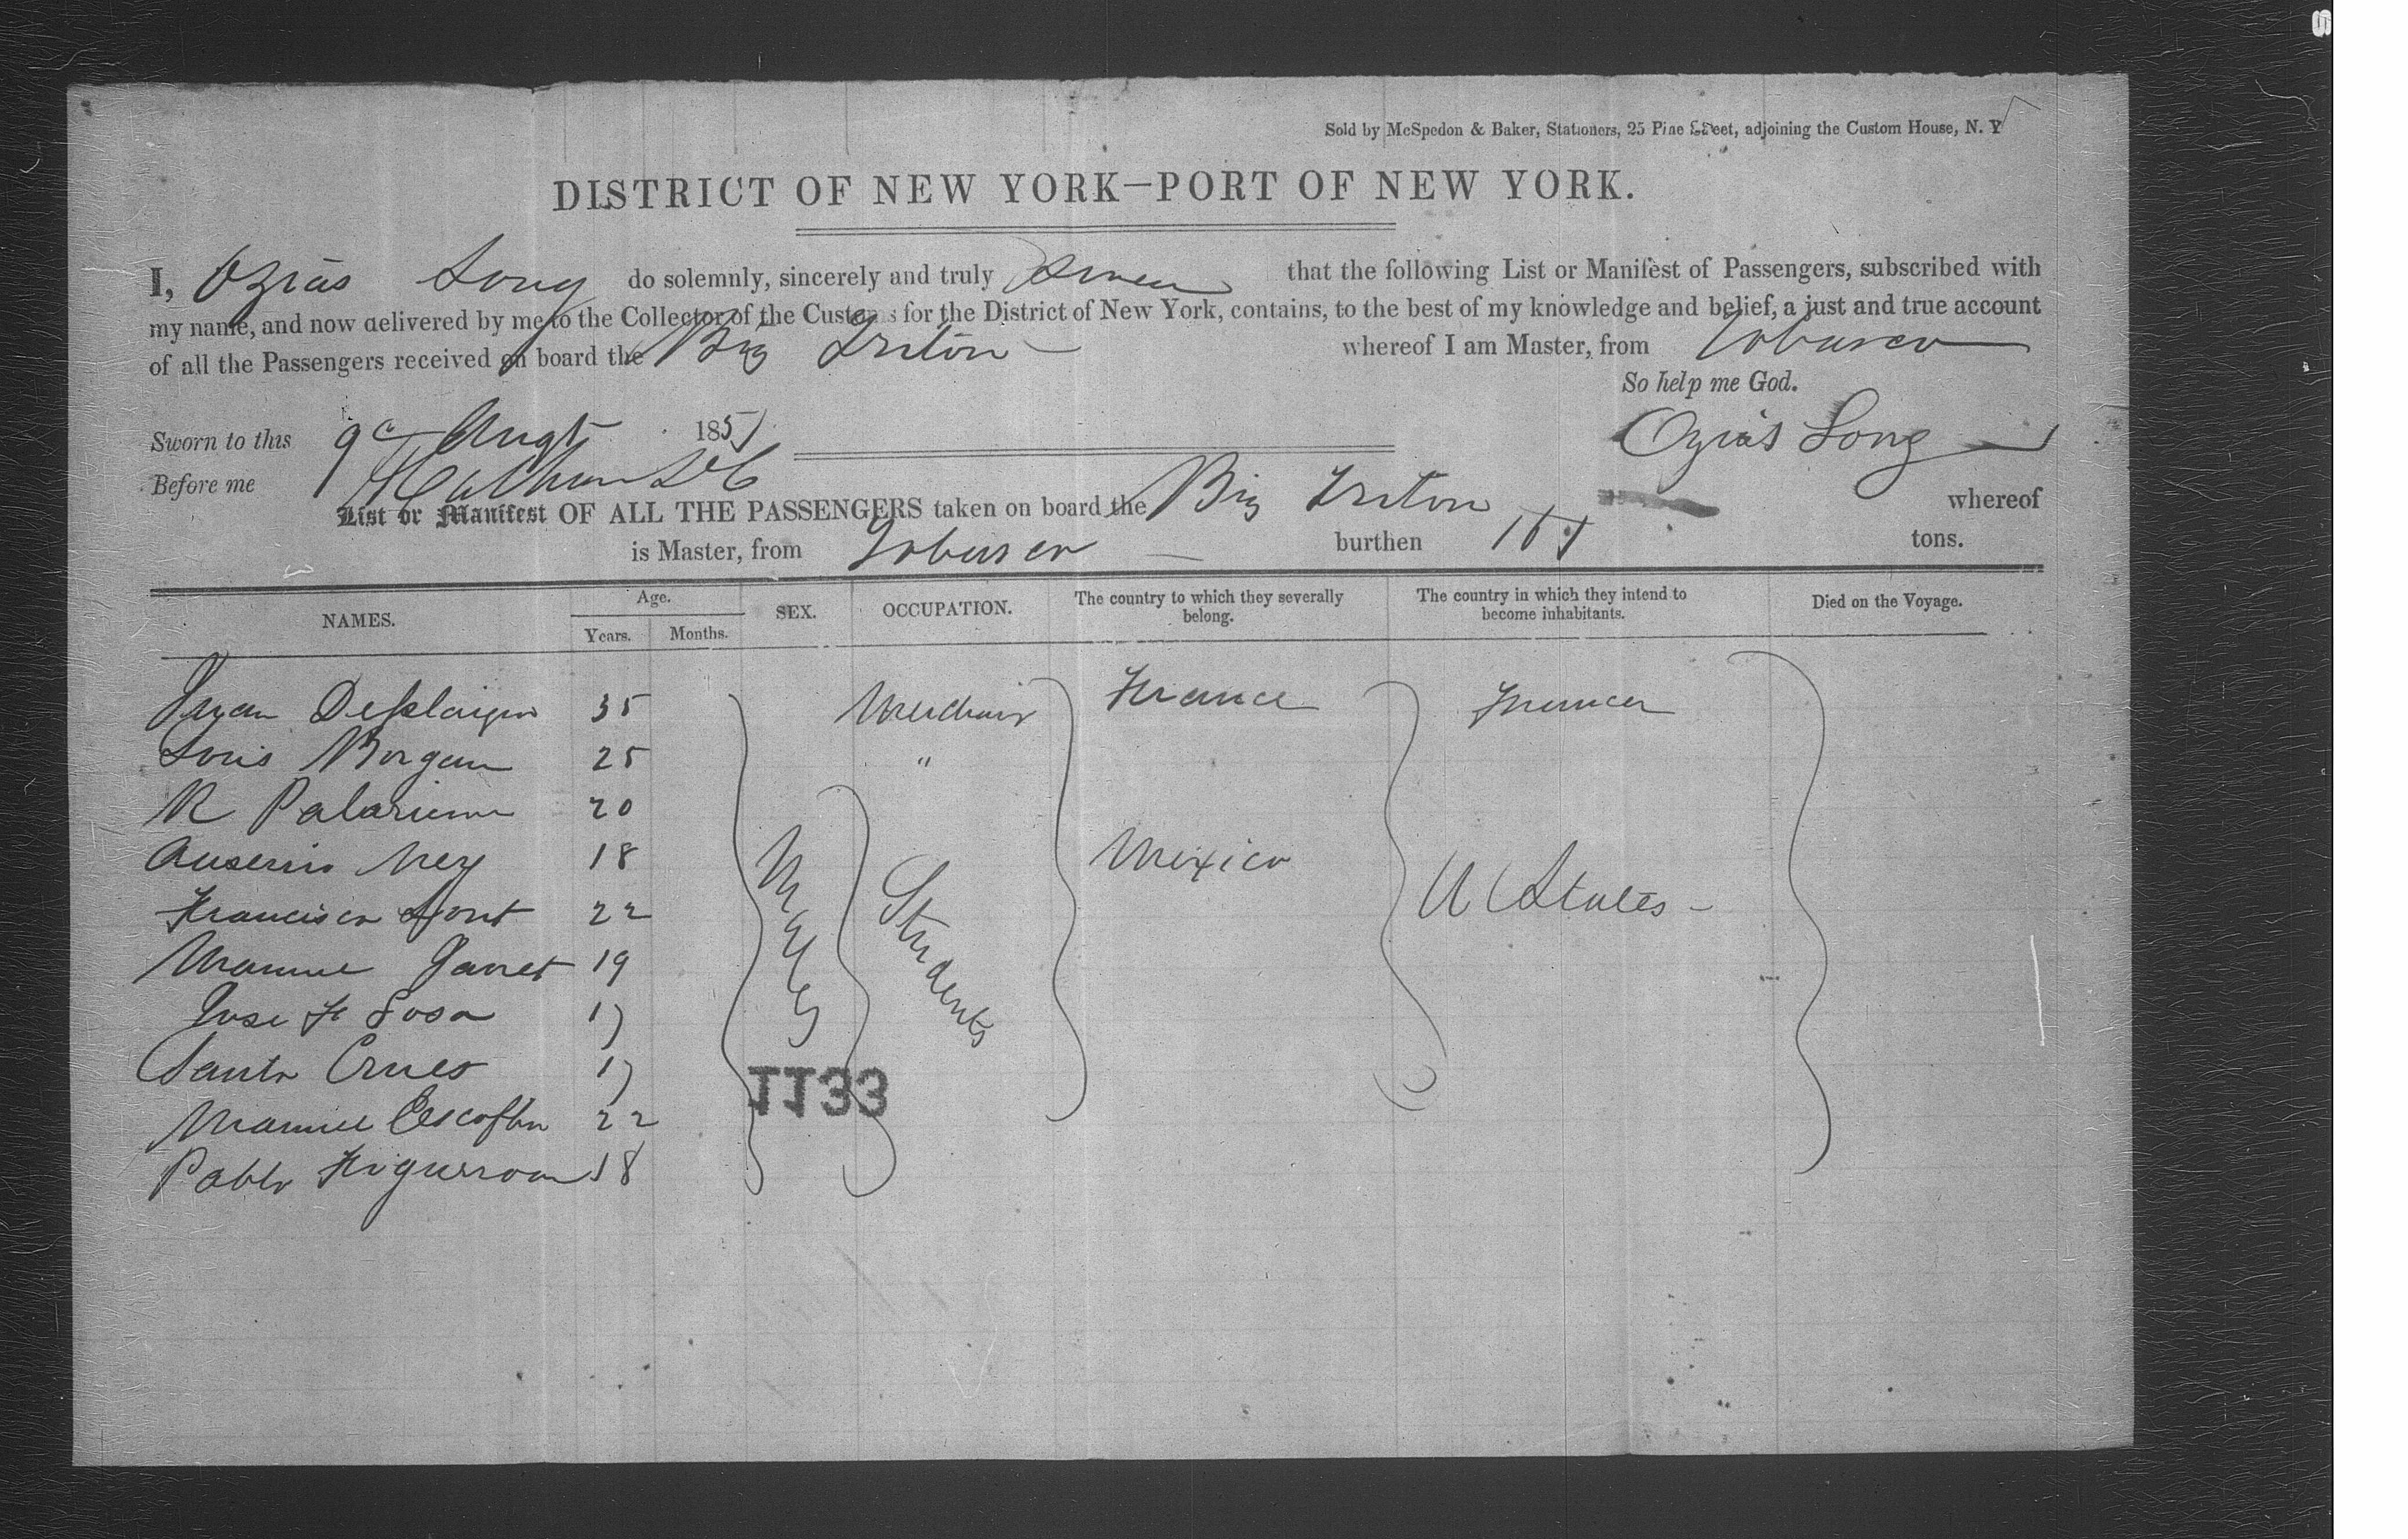 Sold by McSpedon & Baker, Stationers, 25 Pine Street, adjoining the Custom House, N. Y
DISTRICT OF NEW YORK—PORT OF NEW YORK.
I, Ozias Long do solemnly, sincerely and truly Swear that the following List or Manifest of Passengers, subscribed with
my name, and now delivered by me to the Collector of the Customs for the District of New York, contains, to the best of my knowledge and belief, a just and true account
of all the Passengers received on board the Brig Triton — whereof I am Master, from Tobasco
So help me God.
Sworn to this 9 Augt 1857 Ozias Long
Before me
List or Manifest OF ALL THE PASSENGERS taken on board the Brig Triton whereof
is Master, from Tobasco — burthen tons.
NAMES. Age. Years. Months. SEX. OCCUPATION. The country to which they severally belong. The country in which they intend to become inhabitants. Died on the Voyage.
Juan 35 France
Louis Morgan 25 "
R 20
18 Mexico
Francisco 22 U States —
19 Males Students
Jose F Sosa 17
Santo Crues 17
1133
22
Pablo 18